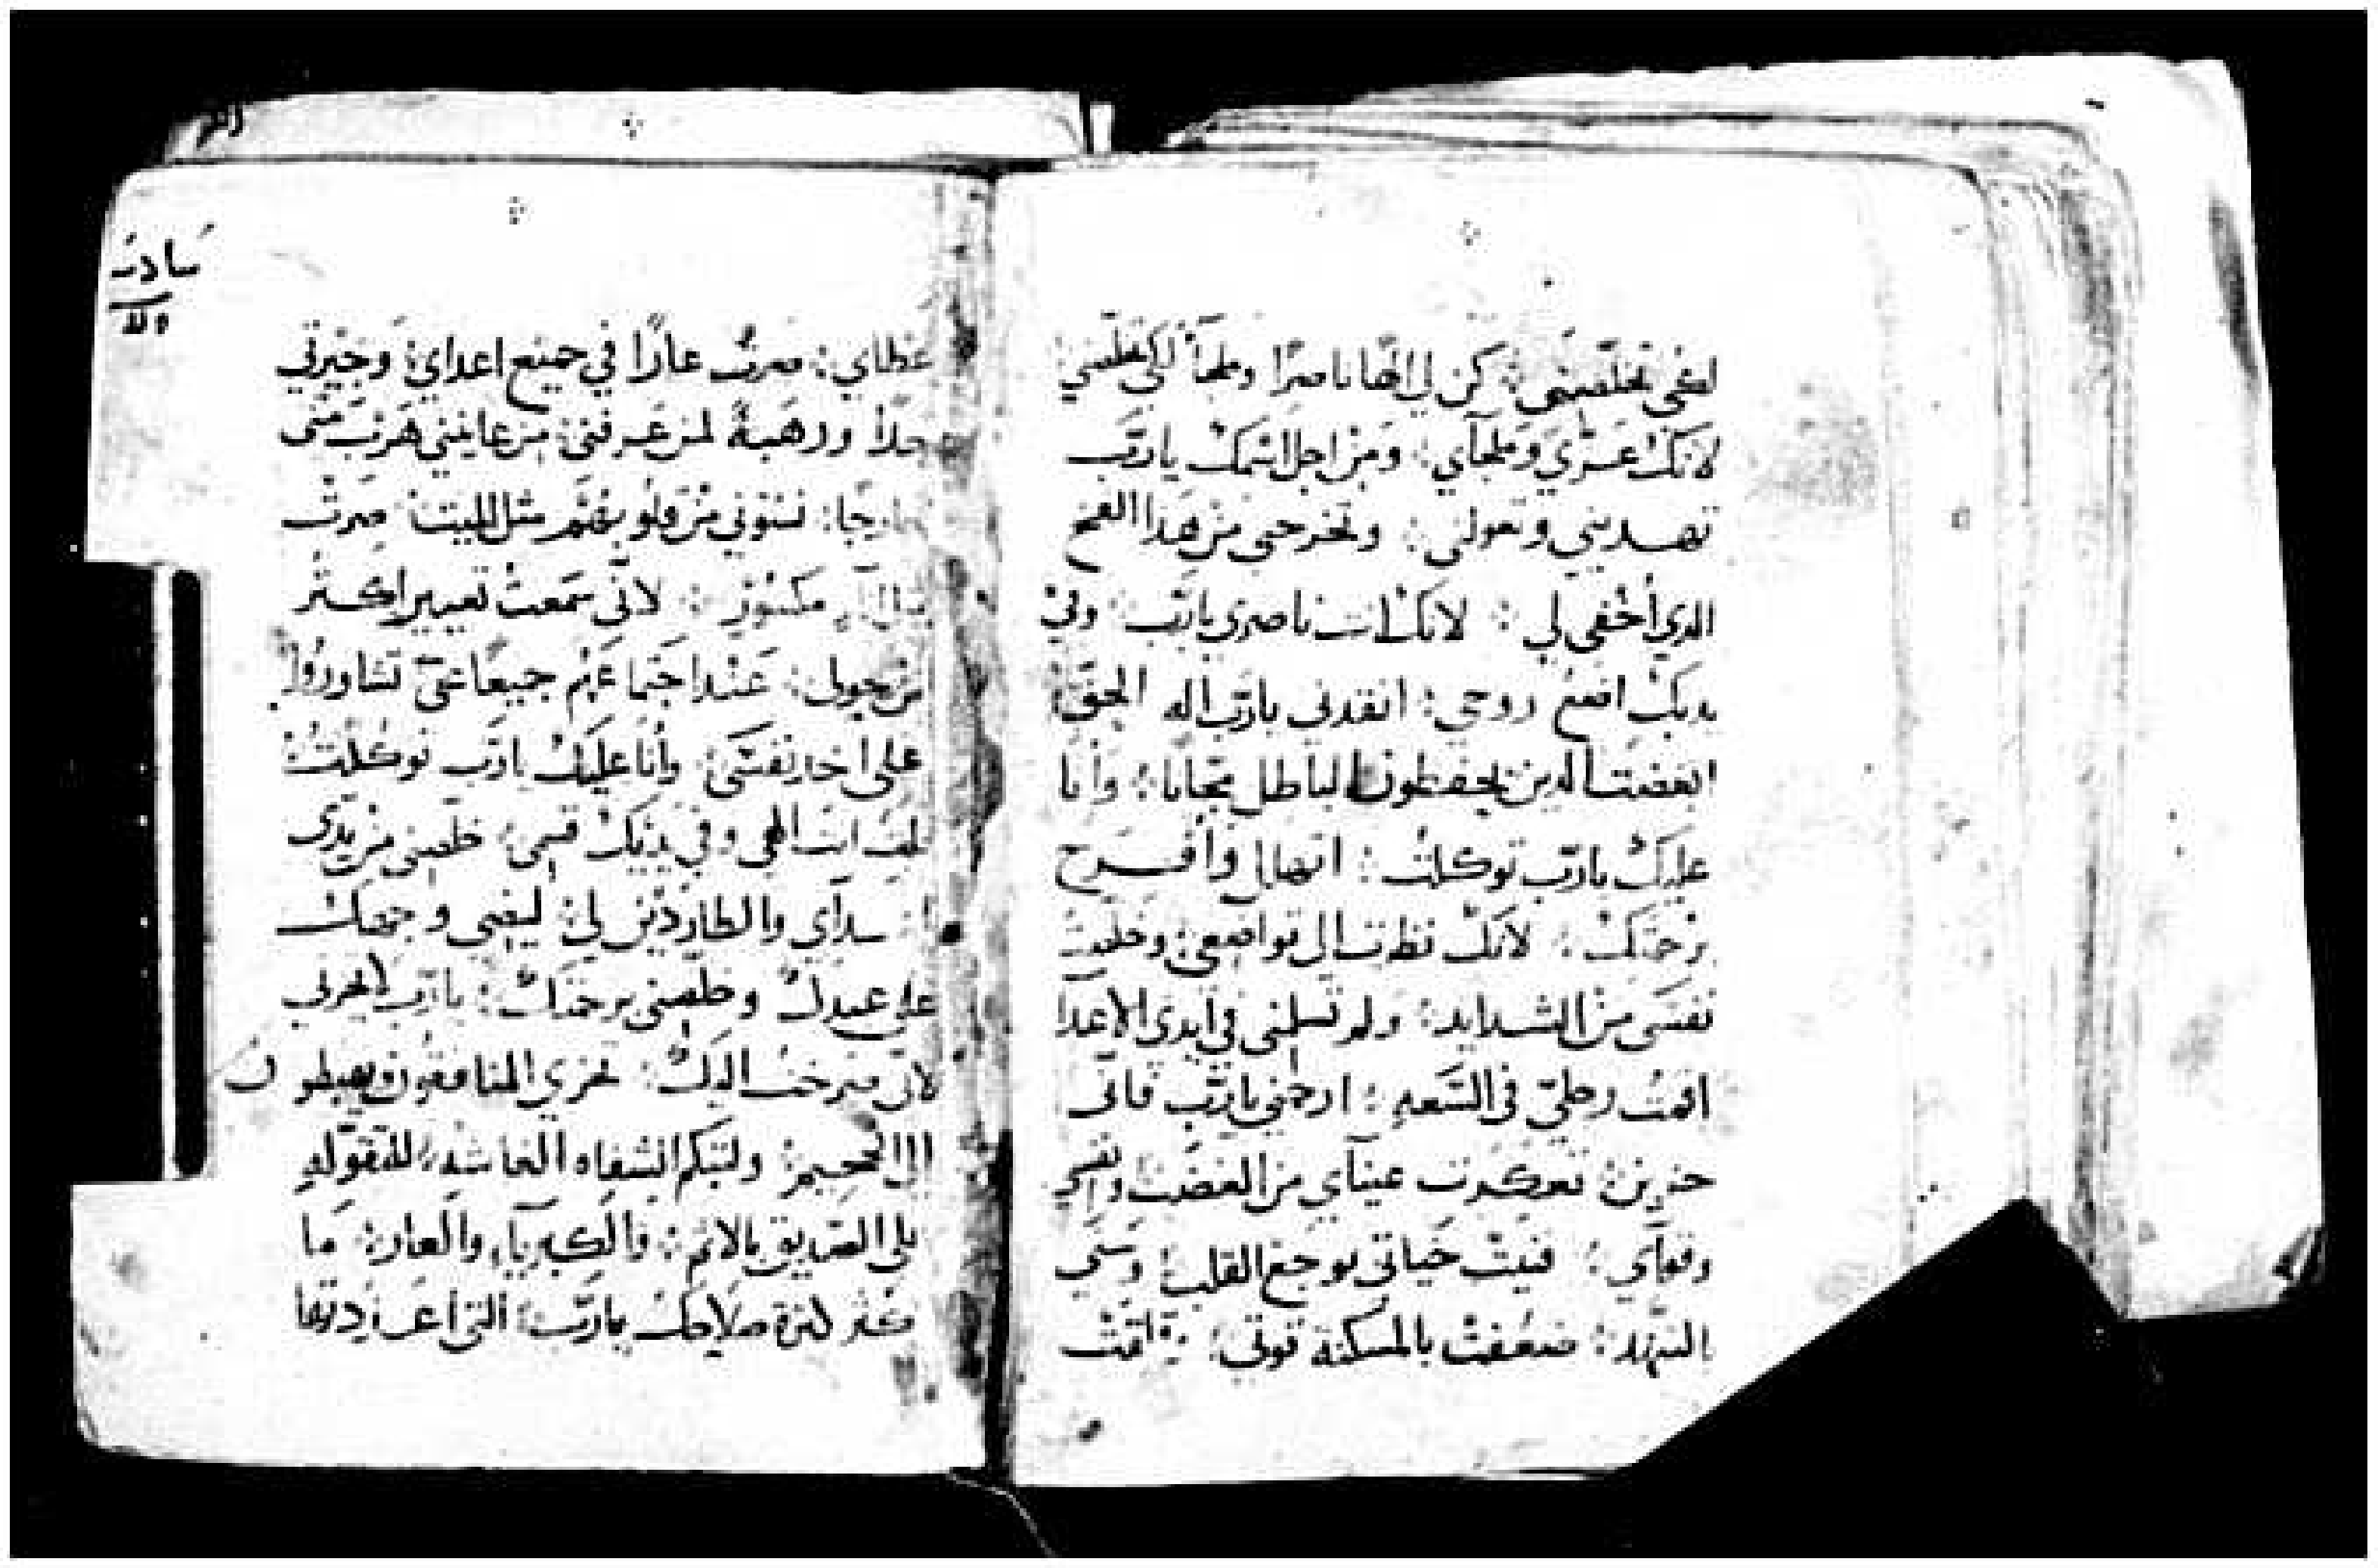 لكي تخلصني : كن لي الها ناصرا وملجأ لكي تخلصني
لانك عزّي وملجآي : ومن اجل اسمك يا ربّ
تهديني وتعولني : وتخرجني من هذا الفخ
الذي أخفي لي : لانك انت ناصري يا ربّ : وفي
يديك اضع روحي : انقذني يا ربّ اله الحقّ :
ابغضت الذين يحفظون الباطل مجّانا : وأنا
عليك يا ربّ توكلتُ : اتهلل وأفرح
برحمتك : لانك نظرت الى تواضعي : وخلّصت
نفسي من الشدايد : ولم تسلمني في أيدي الاعدا
اقمت رجليّ في السّعه : ارحمني يا ربّ فاني
حزين : تعكرت عيناي من الغضب ونفسي
وقوآي : فنيت حياتي بوجع القلب : وسني
التنهد : ضعفت بالمسكنة قوتي : وقلقت
عظامي : صرت عارًا في جميع اعداي : وجيرتي
جدّا ورهبةً لمن عرفني : من عاينني هرب مني
خارجًا : نسوني من قلوبهم مثل الميت : صرت
مكسور : لاني سمعت تعيير اكثر
من حولي : عند اجتماعهم جميعًا عليّ تشاوروا
على اخد نفسي : وأنا عليك يا ربّ توكلتُ :
انت الهي وفي يديك قسمي : خلّصني من يدي
اعداي والطاردين لي : ليضي وجهك
على عبدك وخلّصني برحمتك : يا ربّ لا تخزني
لاني صرخت اليك : تخزي المنافقون ويهبطون
الى الجحيم : ولتبكم الشفاه الغاشه : المتقوله
على الصديق بالاثم : والكبريآء والعار : ما
اكثر كثرة صلاحك يا ربّ : التي اعددتها